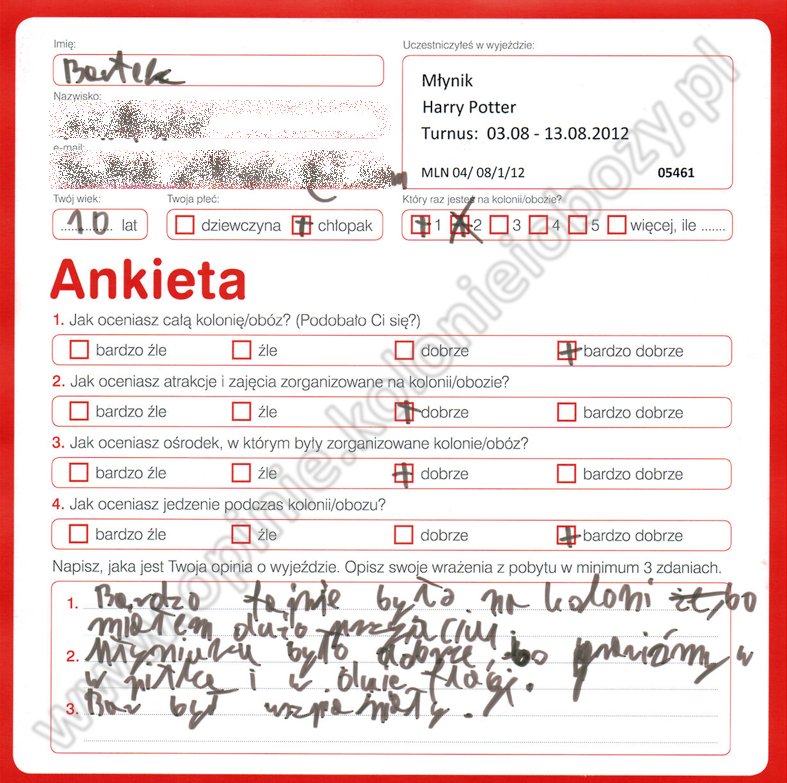 Imię:
Bartek
Nazwisko:
e-mail:
Uczestniczyłeś w wyjeździe:
Młynik
Harry Potter
Turnus: 03.08 - 13.08.2012
MLN 04/ 08/1/12 05461
Twój wiek:
10 lat
Twoja płeć:
dziewczyna chłopak
Który raz jesteś na kolonii/obozie?
1 2 3 4 5 więcej, ile .......
Ankieta
1. Jak oceniasz całą kolonię/obóz? (Podobało Ci się?)
bardzo źle źle dobrze bardzo dobrze
2. Jak oceniasz atrakcje i zajęcia zorganizowane na kolonii/obozie?
bardzo źle źle dobrze bardzo dobrze
3. Jak oceniasz ośrodek, w którym były zorganizowane kolonie/obóz?
bardzo źle źle dobrze bardzo dobrze
4. Jak oceniasz jedzenie podczas kolonii/obozu?
bardzo źle źle dobrze bardzo dobrze
Napisz, jaka jest Twoja opinia o wyjeździe. Opisz swoje wrażenia z pobytu w minimum 3 zdaniach.
1. Bardzo fajnie było na koloni bo
miałem dużo przyjaciół.
2. było dobrze bo graliśmy w
w piłkę i w dwie flagi.
3. Bar był wspaniały.
www.opinie.kolonieiobozy.pl